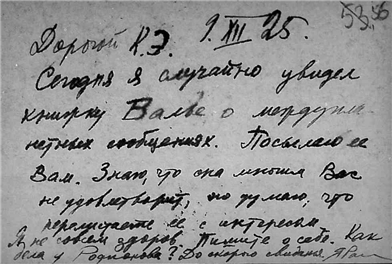 53.56
Дорогой К.Э. 9.XII 25.
Сегодня я случайно увидел
книжку Валье о междупла-
нетных сообщениях. Посылаю ее
Вам. Знаю, что она многим Вас
не удовлетворит, но думаю, что
перелистаете ее с интересом.
Я не совсем здоров. Пишите о себе. Как
дела у Родионова? До скорого свидания.